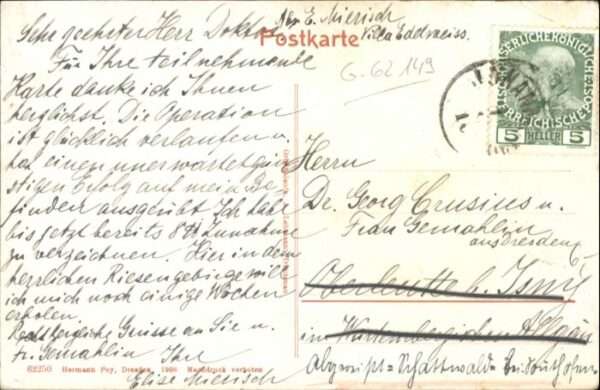 Abs. E. Mierisch
Villa Edelweiss.
Postkarte
G. 62 149
Sehr geehrter Herr Doktor
Für Ihre teilnehmende
Karte danke ich Ihnen
herzlichst. Die Operation
ist glücklich verlaufen u.
hat einen unerwartet gün
stigen Erfolg auf mein Be-
finden ausgeübt. Ich habe
bis jetzt bereits 8 ℔ Zunahme
zu verzeichnen. Hier in dem
herrlichen Riesengebirge will
ich mich noch einige Wochen
erholen.
Recht herzliche Grüsse an Sie u.
Fr. Gemahlin Ihre
Elise Mierisch
KAISERLICHE KÖNIGLICHE
ÖSTERREICHISCHE
5 HELLER 5
Herrn
Dr. Georg Crusius u.
Frau Gemahlin
aus Dresden
b. Isny
in Württembergischen Allgäu
Schattwald
62250 Hermann Poy, Dresden. 1908 Nachdruck verboten